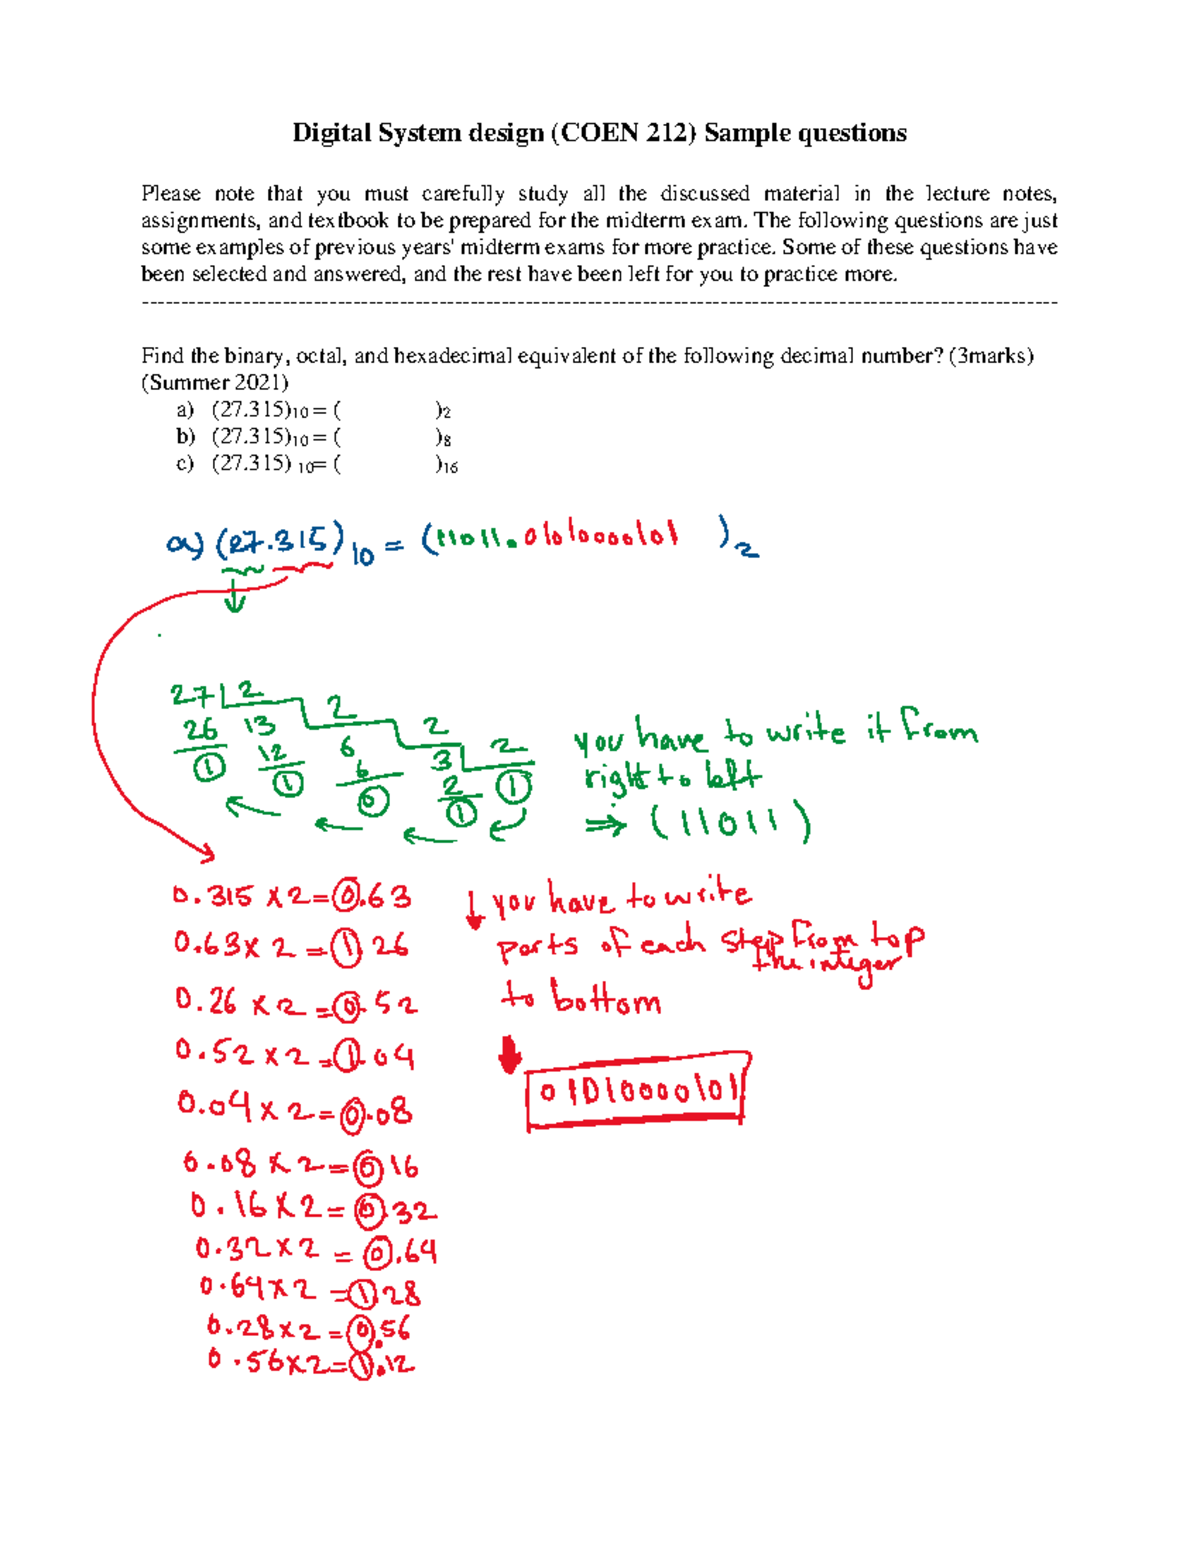 Digital System design (COEN 212) Sample questions
Please note that you must carefully study all the discussed material in the lecture notes,
assignments, and textbook to be prepared for the midterm exam. The following questions are just
some examples of previous years' midterm exams for more practice. Some of these questions have
been selected and answered, and the rest have been left for you to practice more.
------------------------------------------------------------------------------------------------------------------
Find the binary, octal, and hexadecimal equivalent of the following decimal number? (3marks)
(Summer 2021)
a) (27.315)10 = ( )2
b) (27.315)10 = ( )8
c) (27.315) 10= ( )16
a) (27.315)10 = (11011.01010000101 )2
27 2 2 2 2
26 13 6 3 1
1 12 6 2
1 0 1
you have to write it from
right to left
⇒ (11011)
0.315 x 2 = 0.63
0.63 x 2 = 1.26
0.26 x 2 = 0.52
0.52 x 2 = 1.04
0.04 x 2 = 0.08
0.08 x 2 = 0.16
0.16 x 2 = 0.32
0.32 x 2 = 0.64
0.64 x 2 = 1.28
0.28 x 2 = 0.56
0.56 x 2 = 1.12
↓ you have to write
parts of each step from top
the integer
to bottom
01010000101